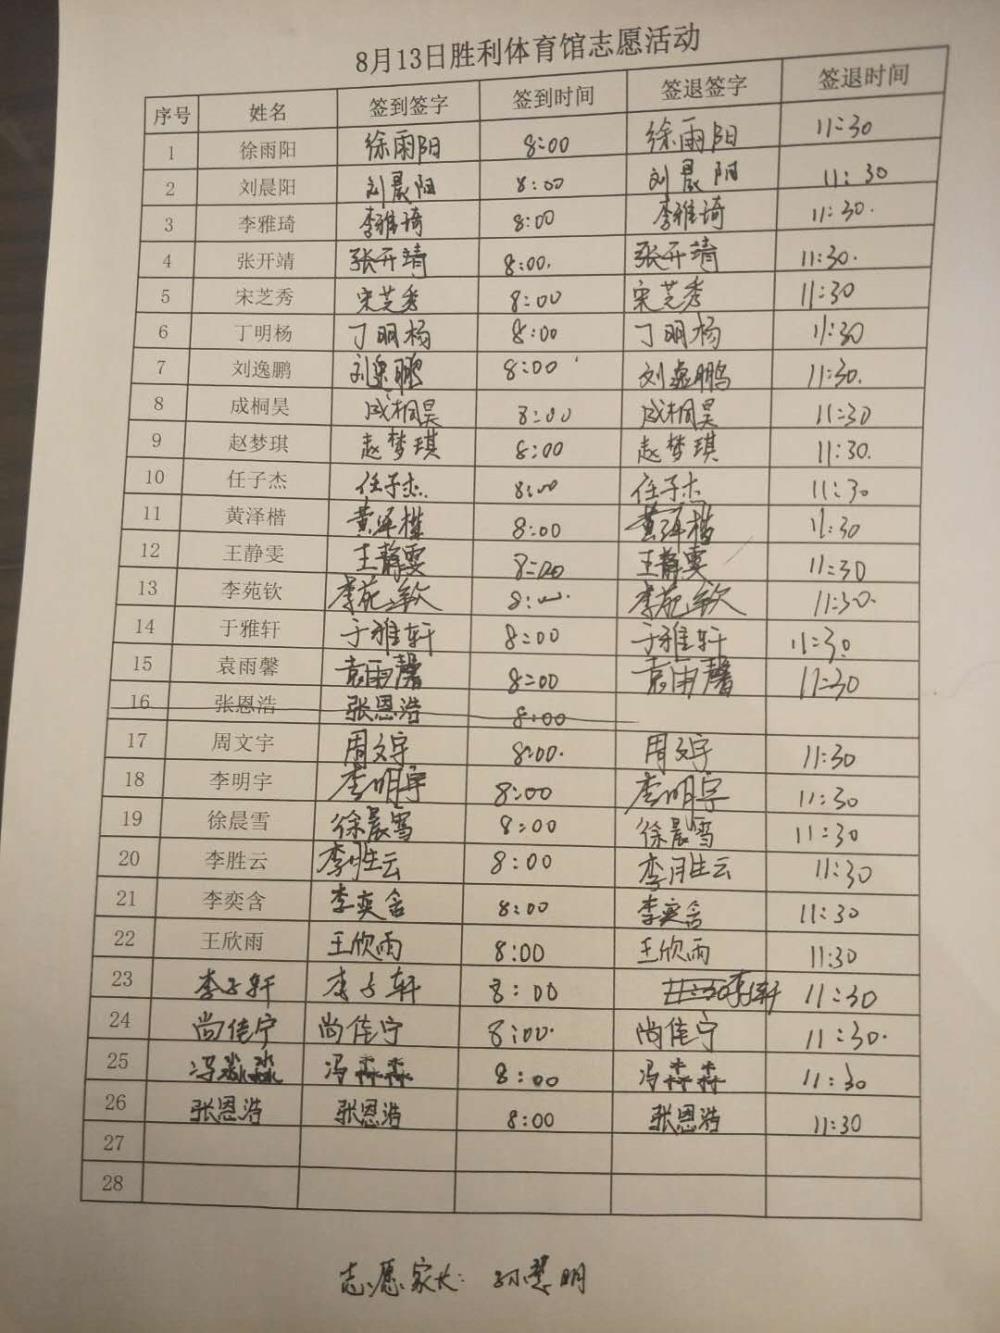 8月13日胜利体育馆志愿活动
序号 姓名 签到签字 签到时间 签退签字 签退时间
1 徐雨阳 徐雨阳 8:00 徐雨阳 11:30
2 刘晨阳 刘晨阳 8:00 刘晨阳 11:30
3 李雅琦 李雅琦 8:00 李雅琦 11:30.
4 张开靖 张开靖 8:00. 张开靖 11:30.
5 宋芝秀 宋芝秀 8:00 宋芝秀 11:30
6 丁明杨 丁明杨 8:00 丁明杨 11:30
7 刘逸鹏 刘逸鹏 8:00 刘逸鹏 11:30.
8 成桐昊 成桐昊 8:00 成桐昊 11:30
9 赵梦琪 赵梦琪 8:00 赵梦琪 11:30.
10 任子杰 任子杰. 8:00 任子杰 11:30
11 黄泽楷 黄泽楷 8:00 黄泽楷 11:30
12 王静雯 王静雯 8:00 王静雯 11:30
13 李苑钦 李苑钦 8:00. 李苑钦 11:30.
14 于雅轩 于雅轩 8:00 于雅轩 11:30.
15 袁雨馨 袁雨馨 8:00 袁雨馨 11:30
16 张恩浩 张恩浩 8:00
17 周文宇 周文宇 8:00. 周文宇 11:30
18 李明宇 李明宇 8:00 李明宇 11:30
19 徐晨雪 徐晨雪 8:00 徐晨雪 11:30
20 李胜云 李胜云 8:00 李胜云 11:30
21 李奕含 李奕含 8:00 李奕含 11:30
22 王欣雨 王欣雨 8:00 王欣雨 11:30
23 李子轩 李子轩 8:00 11:30 李子轩 11:30
24 尚佳宁 尚佳宁 8:00. 尚佳宁 11:30.
25 冯淼淼 冯淼淼 8:00 冯淼淼 11:30
26 张恩浩 张恩浩 8:00 张恩浩 11:30
27
28
志愿家长: 孙慧明